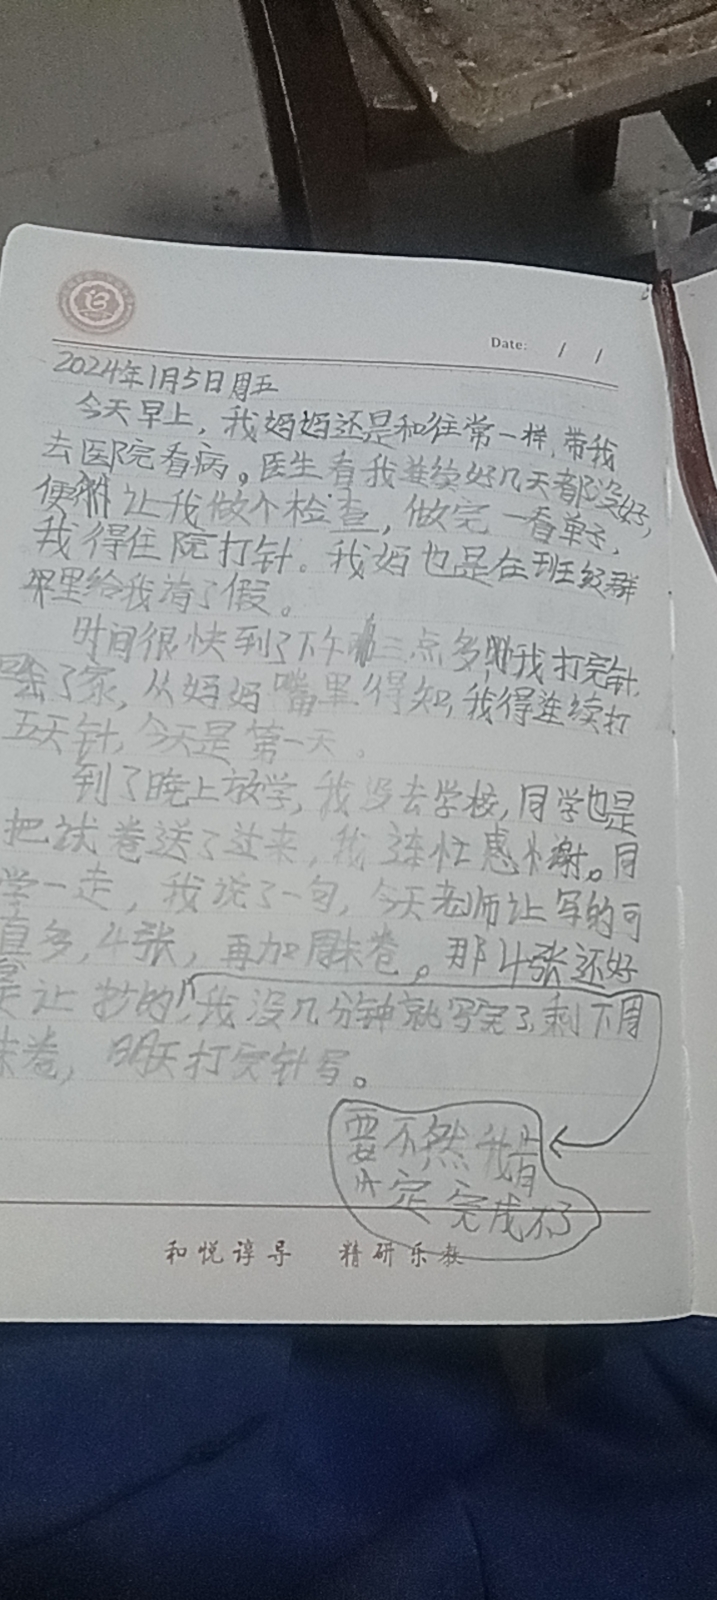 Date: / /
2024年1月5日周五
今天早上，我妈妈还是和往常一样，带我
去医院看病。医生看我连续好几天都没好，
便 让我做个检查，做完一看单子，
我得住院打针。我妈也是在班级群
里给我请了假。
时间很快到了下午三点多，我打完针，
回了家，从妈妈嘴里得知，我得连续打
五天针，今天是第一天。
到了晚上放学，我没去学校，同学也是
把试卷送了过来，我连忙感谢。同
学一走，我说了一句，今天老师让写的可
真多，4张，再加周末卷。那4张还好
是让抄的，我没几分钟就写完了，剩下周
末卷，明天打完针写。
要不然我肯
定完成不了
和悦谆导 精研乐教